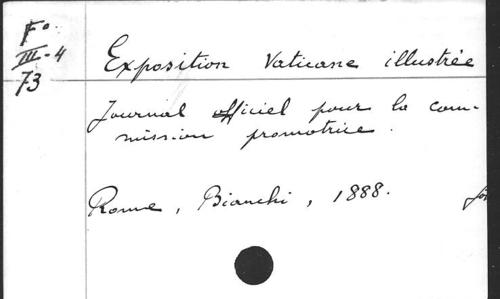 F°
III-4
73
Exposition Vaticane illustrée
Journal officiel pour la com-
mission promotrice.
Rome, Bianchi, 1888.